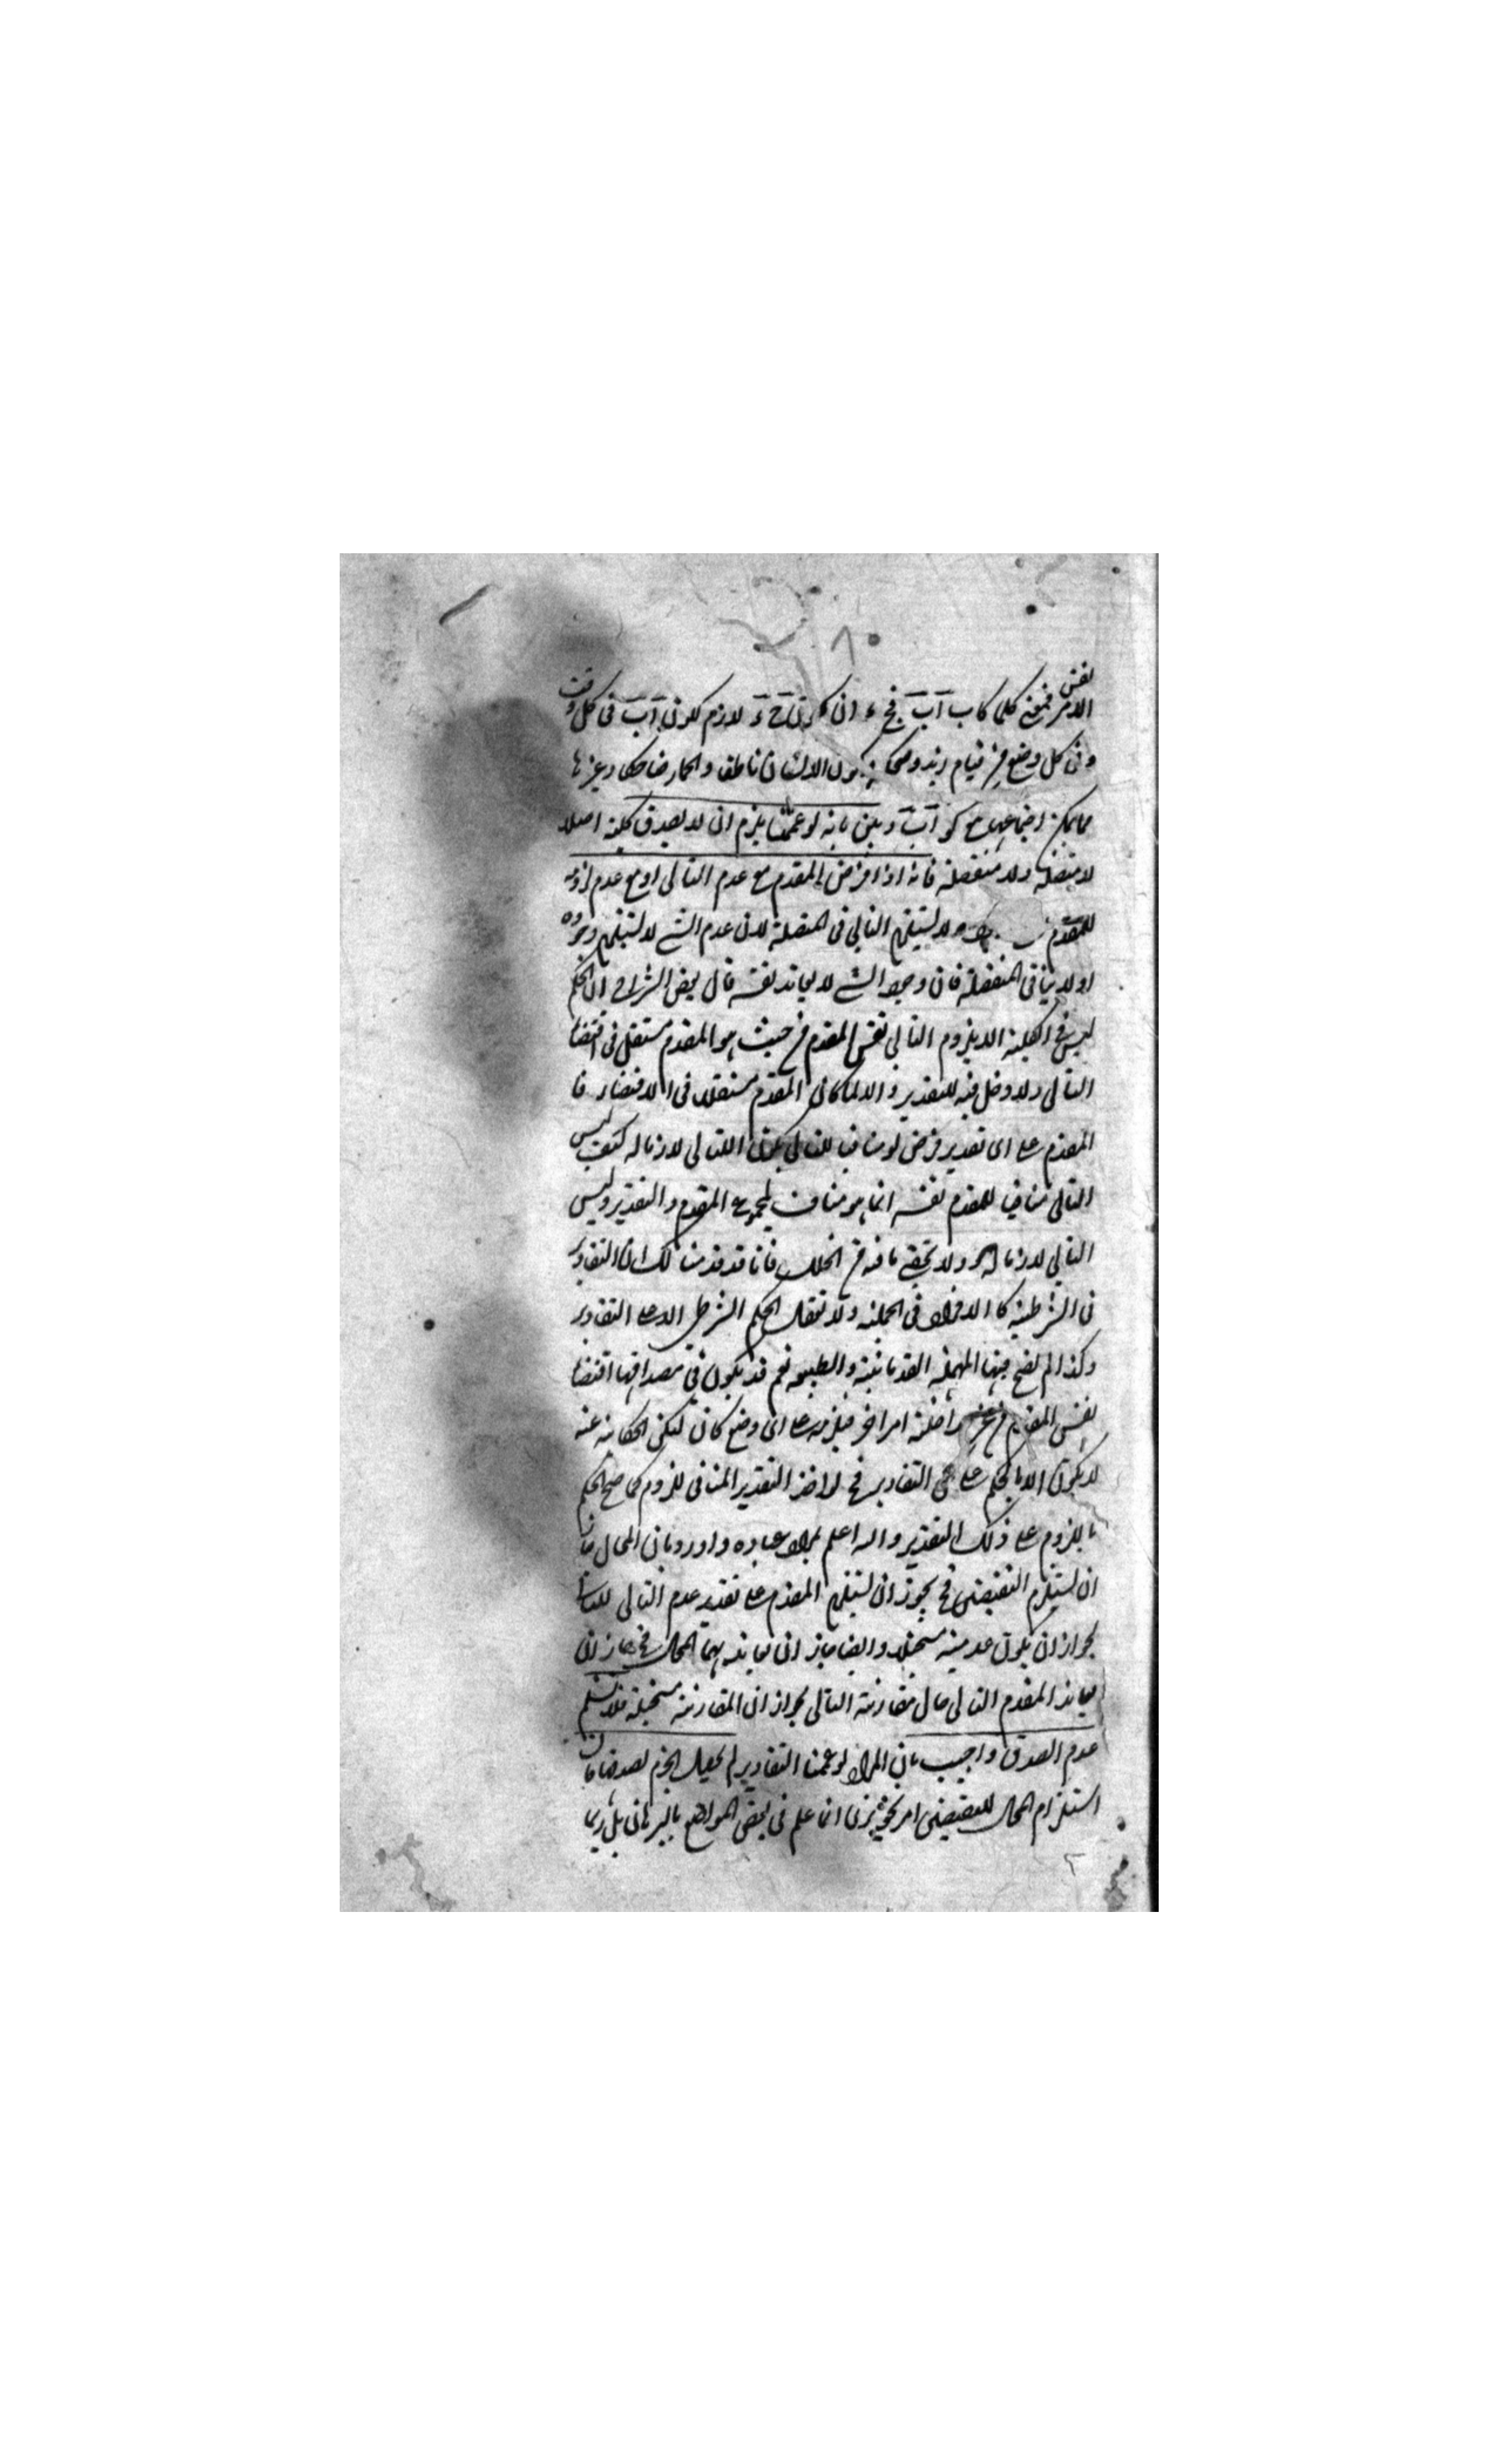 ٨
نفس
الامر فمعنى كلما كان آب فج ء ان كون ج ء لازم لكون آب فى كل وقت
وفى كل وضع من قيام زيد وضحكه وكون الانسان ناطقا والحمار ضاحكا وغيرها
مما يمكن اجتماعه مع كون آب وبين بانه لو عممنا يلزم ان لا يصدق كلية اصلا
لا متصلة ولا منفصلة فانه اذا فرض المقدم مع عدم التالى او مع عدم لزومه
للمقدم لا يستلزم التالى فى المتصلة لان عدم الشئ لا يستلزم وجوده
او لا ينافى المنفصلة فان وجود الشئ لا يعاند نفسه قال بعض الشراح ان الحكم
ليس فى الكلية الا بلزوم التالى نفس المقدم من حيث هو المقدم مستقل فى اقتضاء
التالى ولا دخل فيه للتقدير والا لما كان المقدم مستقلا فى الاقتضاء فا
المقدم على اى تقدير فرض لو منافيا للتالى يكون التالى لازما له كيف ليس
التالى منافيا للمقدم نفسه انما هو مناف لمجموع المقدم والتقدير وليس
التالى لازما له ولا يخفى ما فيه من الخلل فانا قد قدمنا لك ان التقادير
فى الشرطية كالافراد فى الحملية ولا تعقل الحكم الشرطى الا على التقادير
وكذا لم تصح فيها المهملة القدمائية والطبعية نعم قد يكون فى مصداقها اقتضاء
نفس المقدم من غير مداخلة امر اخر فيلزمه على اى وضع كان لكن الحكاية عنه
لا يكون الا بالحكم على التقادير فح لو اخذ التقدير المنافى للزوم كما صح الحكم
باللزوم على ذلك التقدير والله اعلم بمراد عباده واورد بان المحال جاز
ان يستلزم النقيضين فح يجوز ان يستلزم المقدم على تقدير عدم التالى للتالى
لجواز ان يكون عدميته مستحيلا وايضا جاز ان يعانده هما المحال فح جاز ان
يعاند المقدم التالى حال مقارنة التالى لجواز ان المقارنة مستحيلة فلا نسلم
عدم الصدق واجيب بان المراد لو عممنا التقادير لم يحصل الجزم بصدقها فان
استلزام المحال للنقيضين امر تجويزى انما علم فى بعض المواضع بالبرهان بل ربما